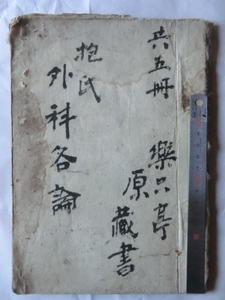 共五冊
樂只亭
原藏書
抱氏
外科各論